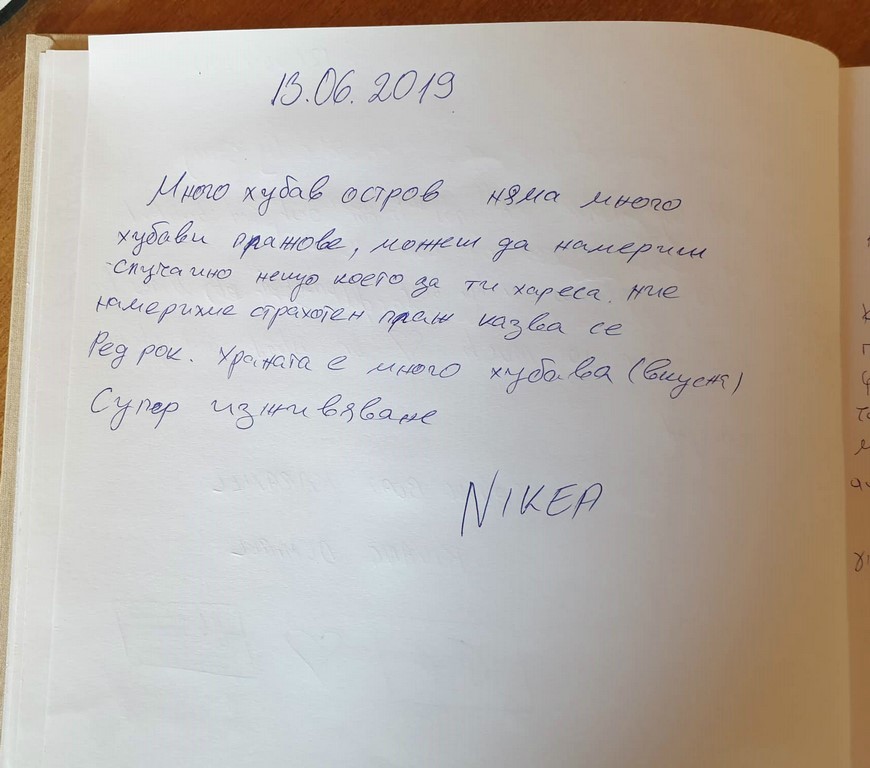 13.06.2019
Много хубав остров няма много
хубави пражове, можеш да намериш
случайно нещо което да ти хареса. ние
намерихме страхотен праж казва се
Ред рок. Храната е много хубава (вкусна)
Супер изживяване
NIKEA